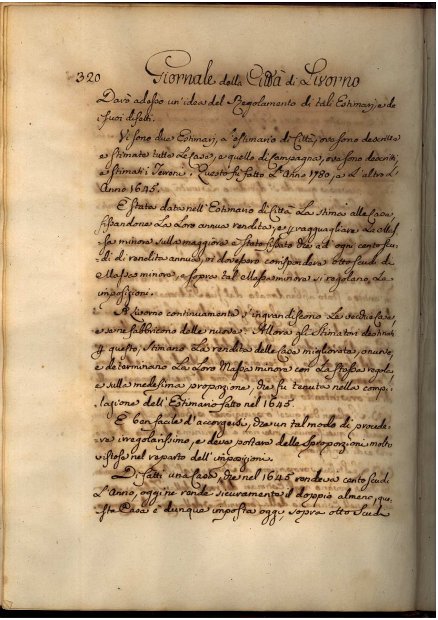 320 Giornale della Città di Livorno
Darò adesso un'idea del Regolamento di tali Estimarj, e de
i suoi difetti.
Vi sono due Estimarj, l'estimario di Città, ove sono descritte
e stimate tutte le Case, e quello di Campagna, ove sono descritti,
e stimati i Terreni. Questo fù fatto L'Anno 1780, e L'altro L'
Anno 1645.
È stata data nell'Estimario di Città La stima alle Case,
fissandone La Loro annua rendita, e ragguagliare La Mas
sa minore sulla maggiore è stato fissato che ad ogni cento scu
di di rendita annua, vi dovessero corrispondere otto scudi di
Massa minore, e sopra tal Massa minore si regolano Le
imposizioni.
A Livorno continuamente s'ingrandiscono Le vecchie Case,
e se ne fabbricono delle nuove: Allora gli Stimatori destinati
questo, stimano La rendita delle Case migliorate, o nuove,
e determinano La Loro Massa minore con La stessa regola
e sulla medesima proporzione, che fu tenuta nella compi
lazione dell'Estimario fatto nel 1645.
È ben facile d'accorgersi, che un tal modo di procede
re è irregolarissimo, e deve portare delle sproporzioni molto
vistose nel reparto dell'imposizioni.
Di fatti una Casa, che nel 1645 rendeva cento scudi
L'Anno, oggi ne rende sicuramente il doppio almeno, que
sta Casa è dunque imposta oggi, sopra otto scudi